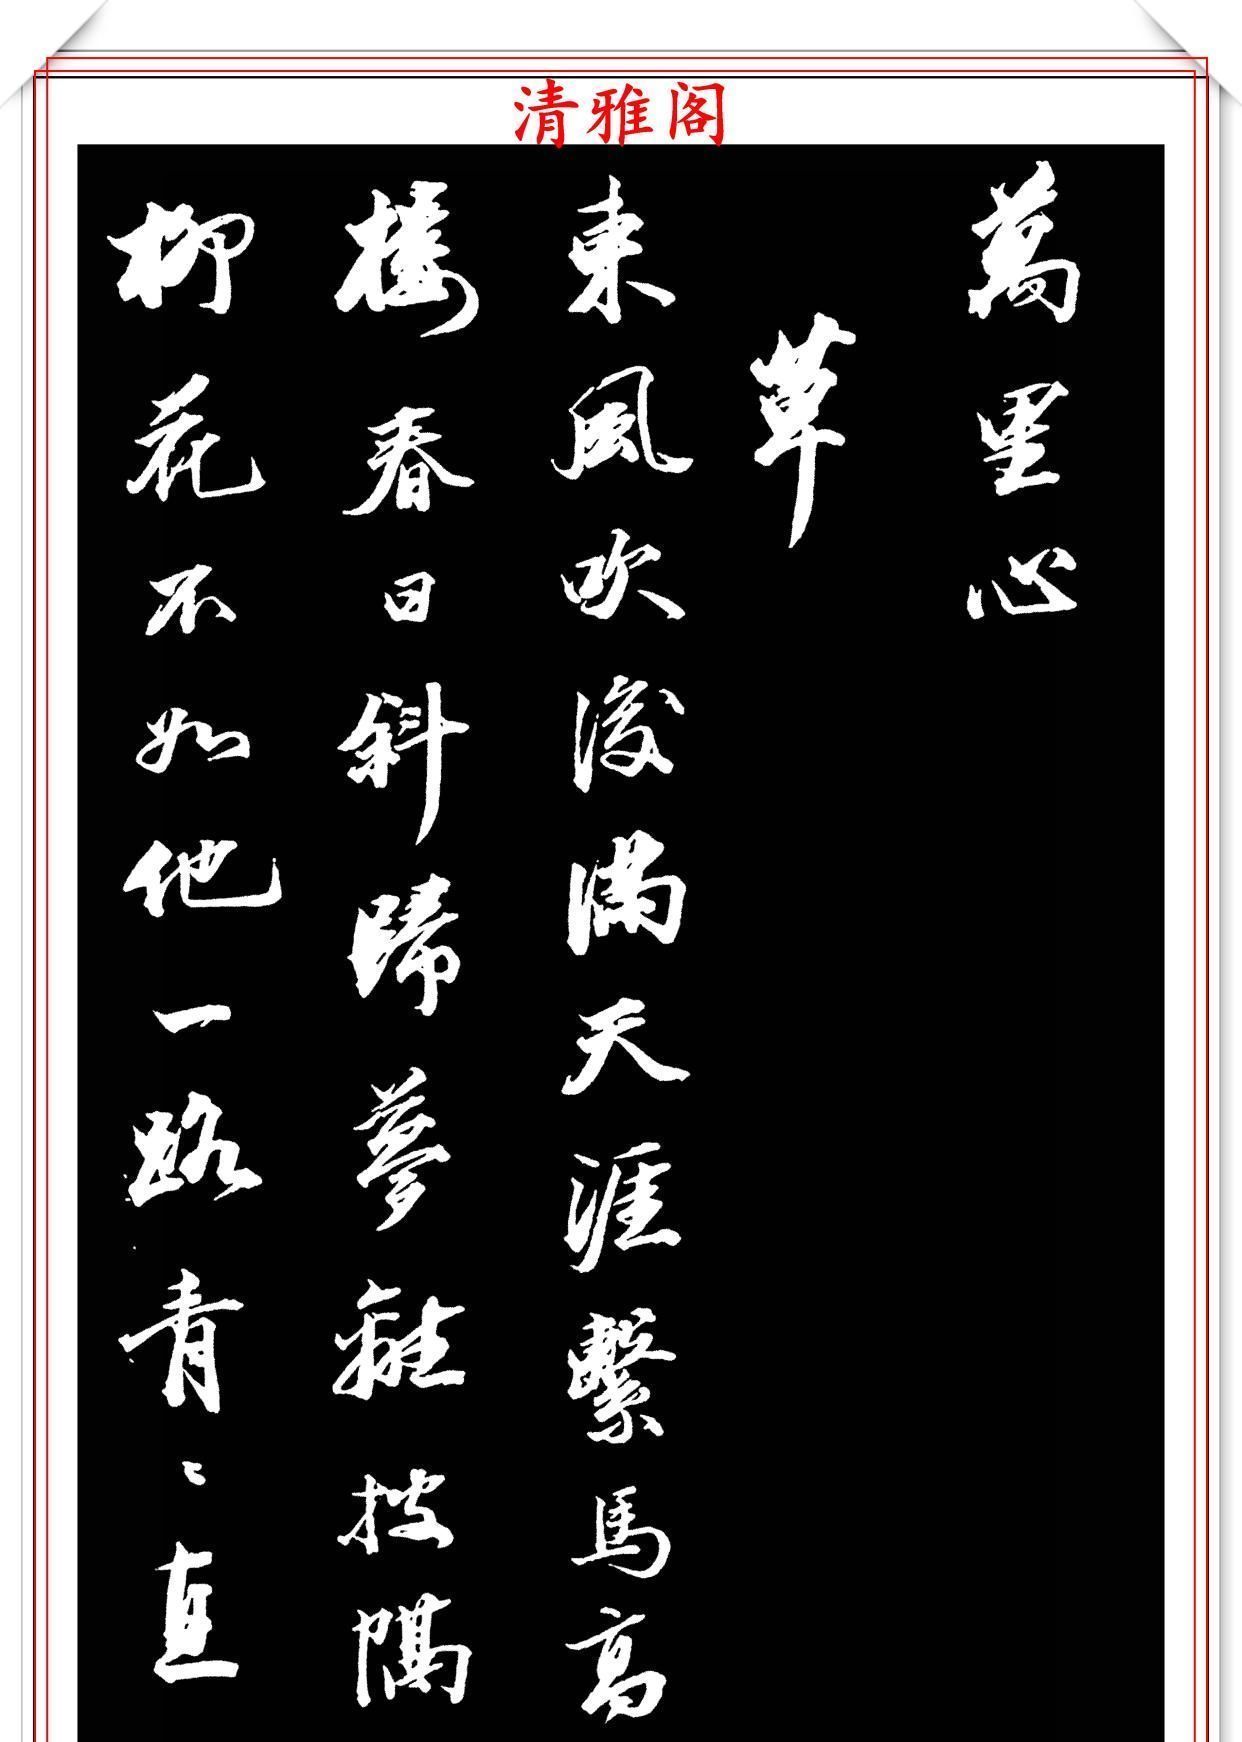 清雅阁
萬里心
草
東風吹渡滿天涯繫馬高
樓春日斜歸夢難披隔
柳花不如他一路青〻直